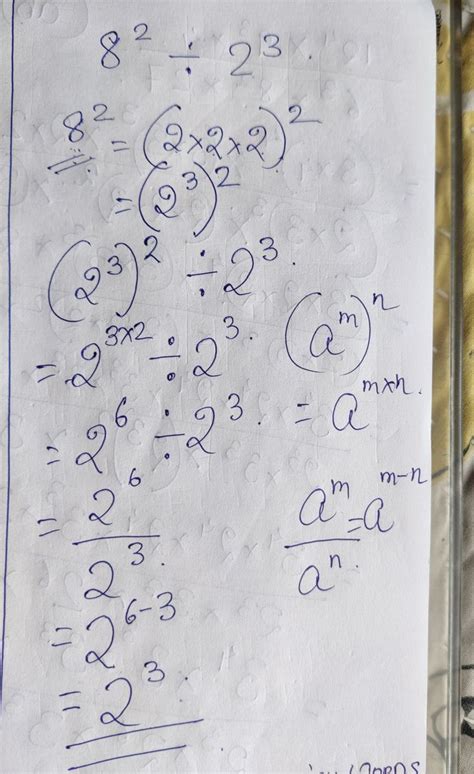 8² ÷ 2³.
8² = (2×2×2)²
= (2³)²
(2³)² ÷ 2³.
= 2³ˣ² ÷ 2³.
(aᵐ)ⁿ
= 2⁶ ÷ 2³.
= aᵐˣⁿ.
= 2⁶
2³.
aᵐ = aᵐ⁻ⁿ
aⁿ.
= 2⁶⁻³
= 2³.